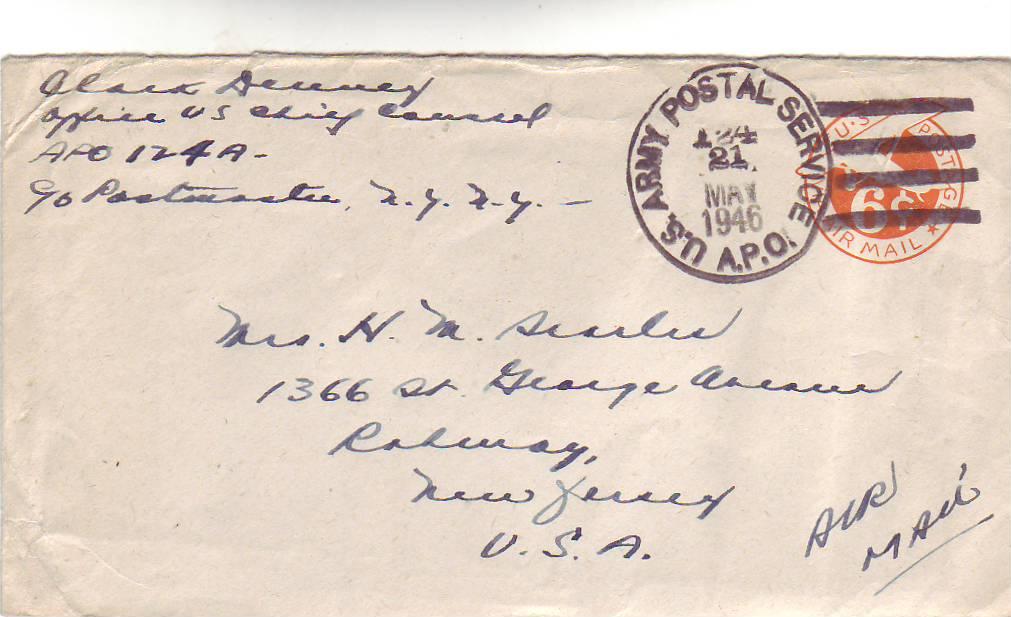 Clark Denney
Office US Chief Counsel
APO 124A -
c/o Postmaster, N.Y. N.Y. -
U.S. ARMY POSTAL SERVICE
A.P.O.
124
21
MAY
1946
U.S. POSTAGE
6¢
AIR MAIL
Mrs. H. M.
1366 St. George Avenue
Rahway,
New Jersey
U.S.A.
AIR
MAIL